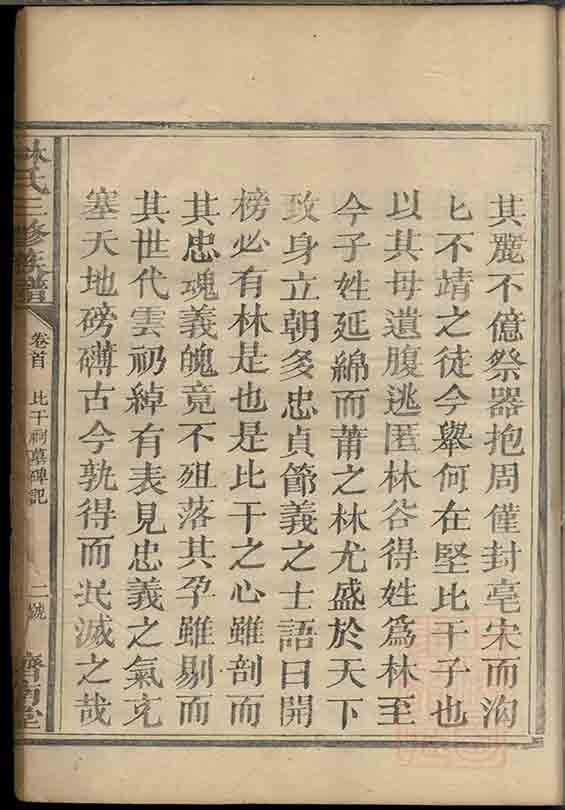 其麗不億祭器抱周僅封亳宋而洵
匕不靖之徒今舉何在堅比干子也
以其母遺腹逃匿林谷得姓爲林至
今子姓延綿而莆之林尤盛於天下
致身立朝多忠貞節義之士語曰開
榜必有林是也是比干之心雖剖而
其忠魂義魄竟不殂落其孕雖剔而
其世代雲礽綽有表見忠義之氣充
塞天地磅礴古今孰得而泯滅之哉
林氏三修族譜
卷首 比干祠墓碑記
二號
濟南堂